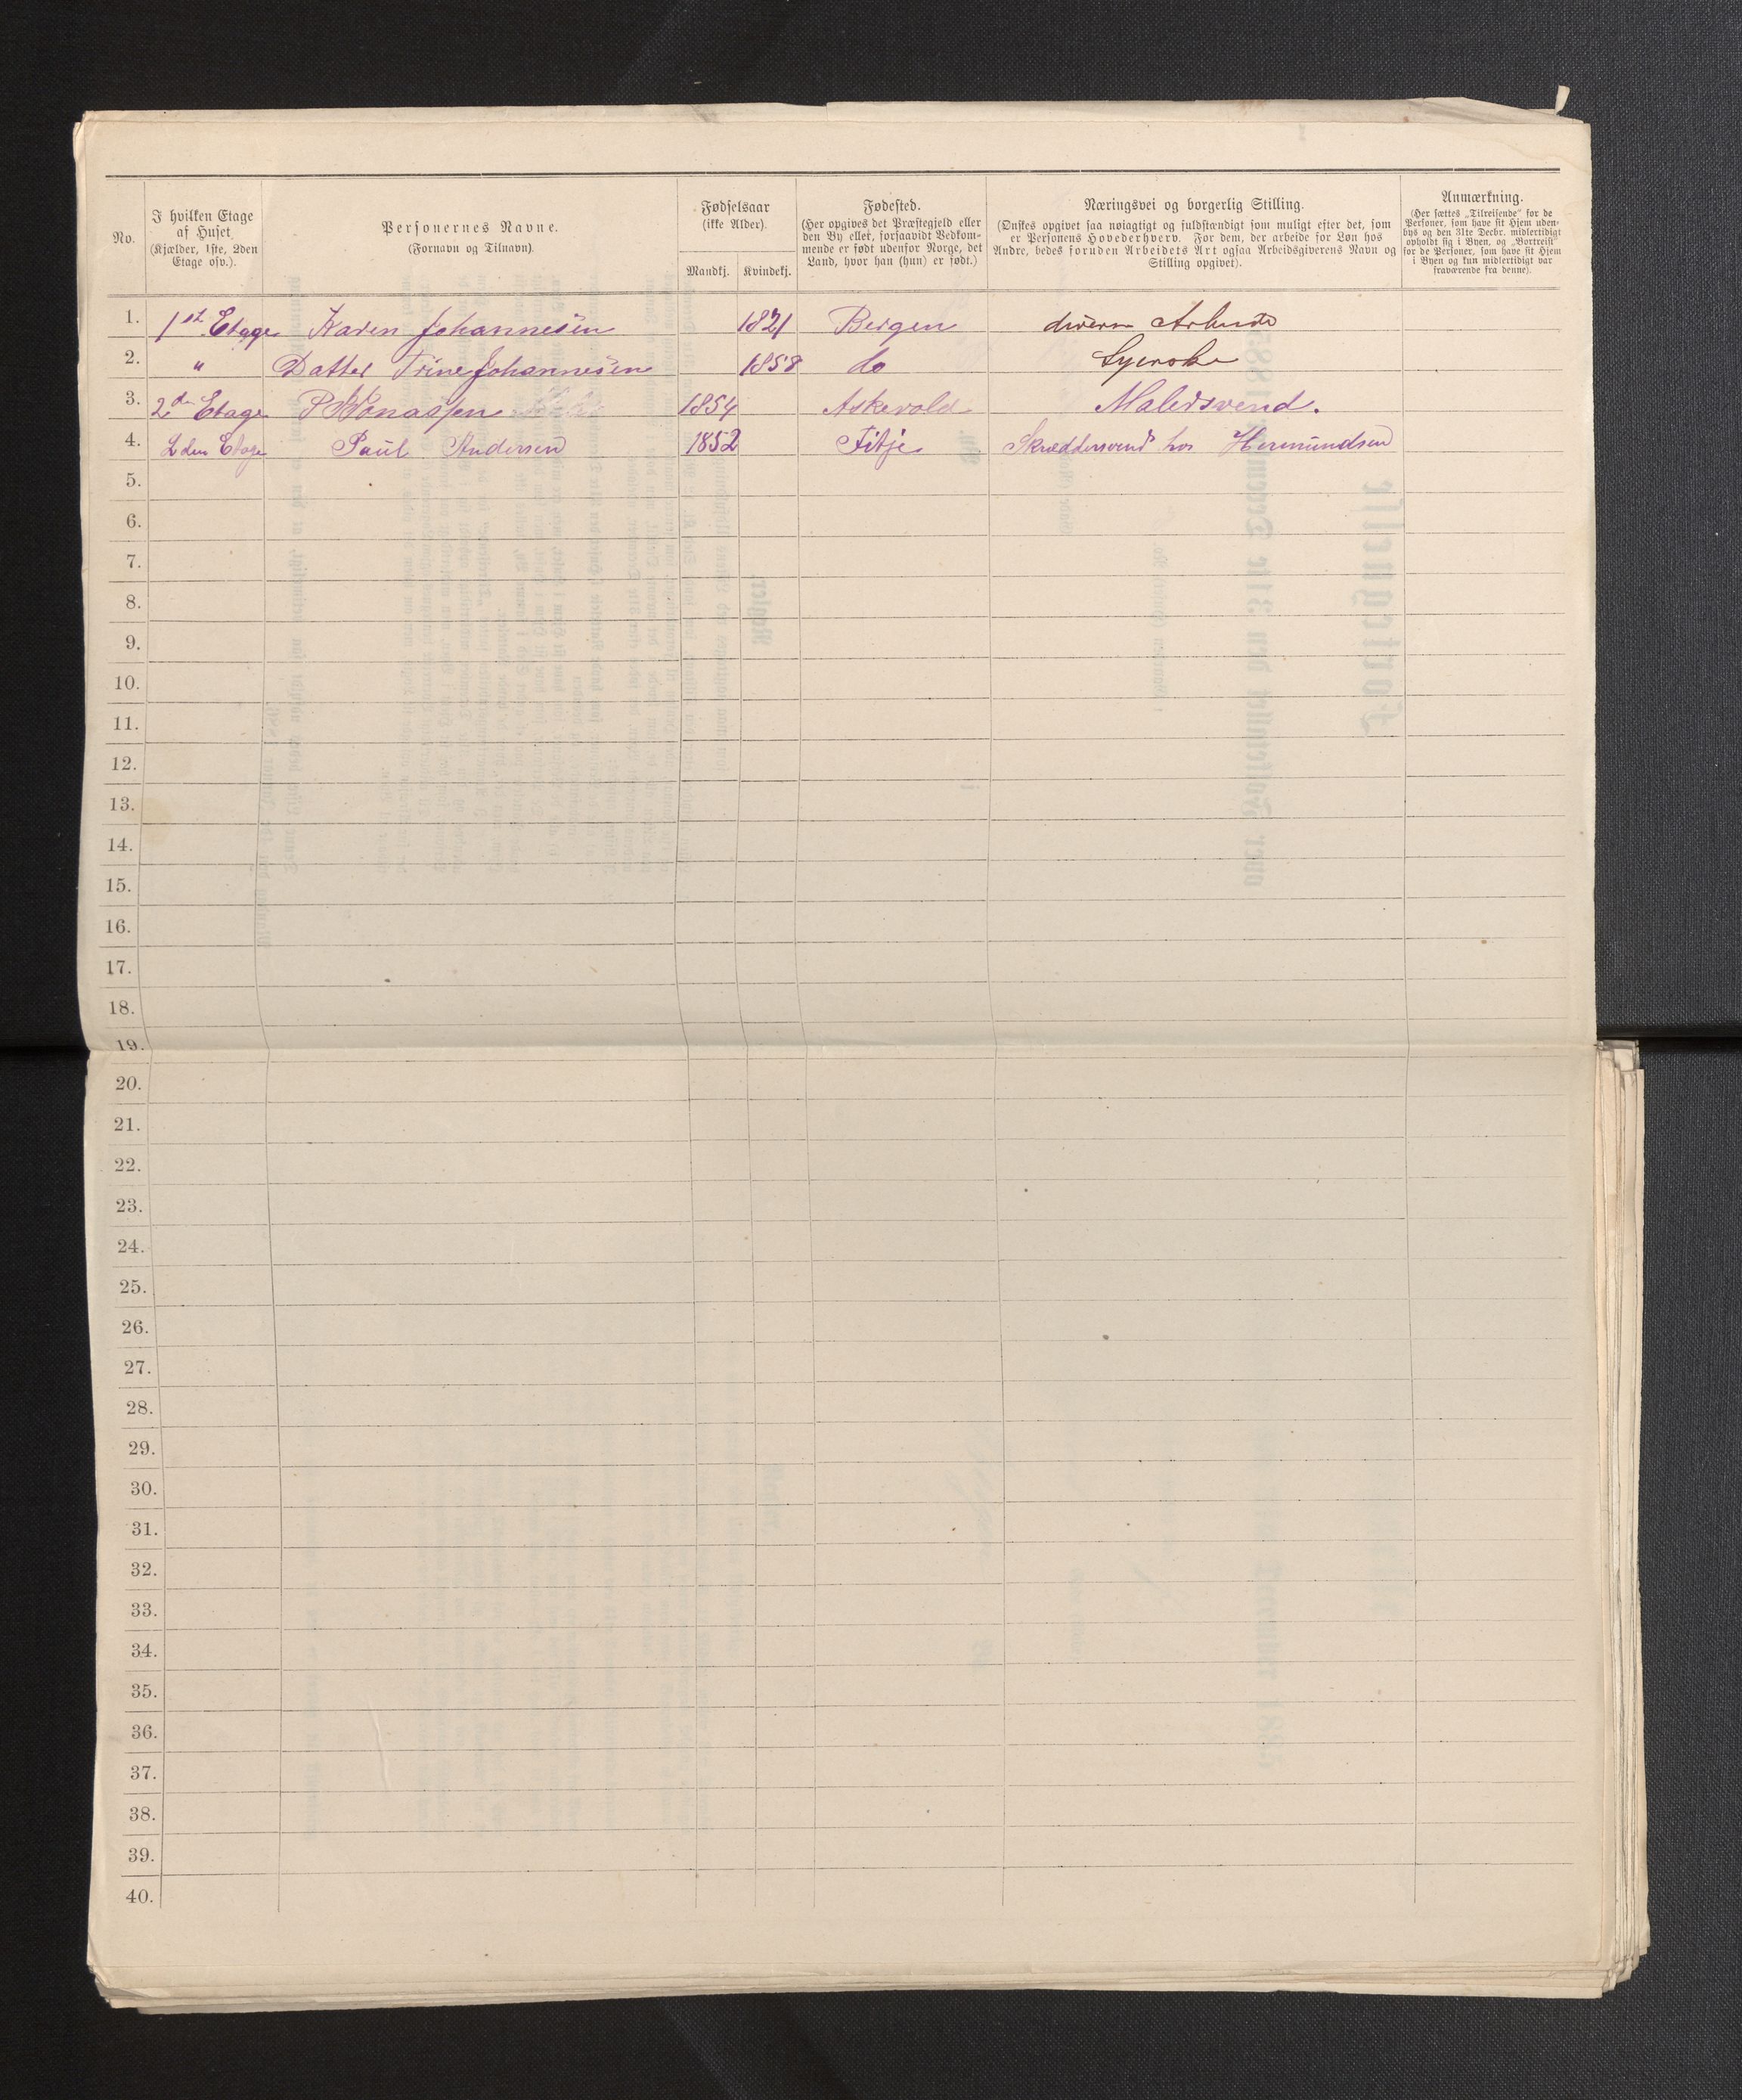 No.
I hvilken Etage
af Huset
(Kjælder, 1ste, 2den
Etage osv.).
Personernes Navne.
(Fornavn og Tilnavn).
Fødselsaar
(ikke Alder).
Mandkj. Kvindekj.
Fødested.
(Her opgives det Præstegjeld eller
den By eller, forsaavidt Vedkom-
mende er født udenfor Norge, det
Land, hvor han (hun) er født.)
Næringsvei og borgerlig Stilling.
(Ønskes opgivet saa nøiagtigt og fuldstændigt som muligt efter det, som
er Personens Hovederhverv. For dem, der arbeide for Løn hos
Andre, bedes foruden Arbeidets Art ogsaa Arbeidsgiverens Navn og
Stilling opgivet).
Anmærkning.
(Her sættes „Tilreisende" for de
Personer, som have sit Hjem uden-
bys og den 31te Decbr. midlertidigt
opholdt sig i Byen, og „Bortreist"
for de Personer, som have sit Hjem
i Byen og kun midlertidigt var
fraværende fra denne).
1. 1st Etage Karen Johannesen 1821 Bergen diverse Arbeide
2. " Datter Trine Johannesen 1858 do Syerske
3. 2d Etage P Monassen 1854 Askevold Malersvend.
4. 2den Etage Paul Andersen 1852 Fitje Skræddersvend hos Hermundsen
5.
6.
7.
8.
9.
10.
11.
12.
13.
14.
15.
16.
17.
18.
19.
20.
21.
22.
23.
24.
25.
26.
27.
28.
29.
30.
31.
32.
33.
34.
35.
36.
37.
38.
39.
40.